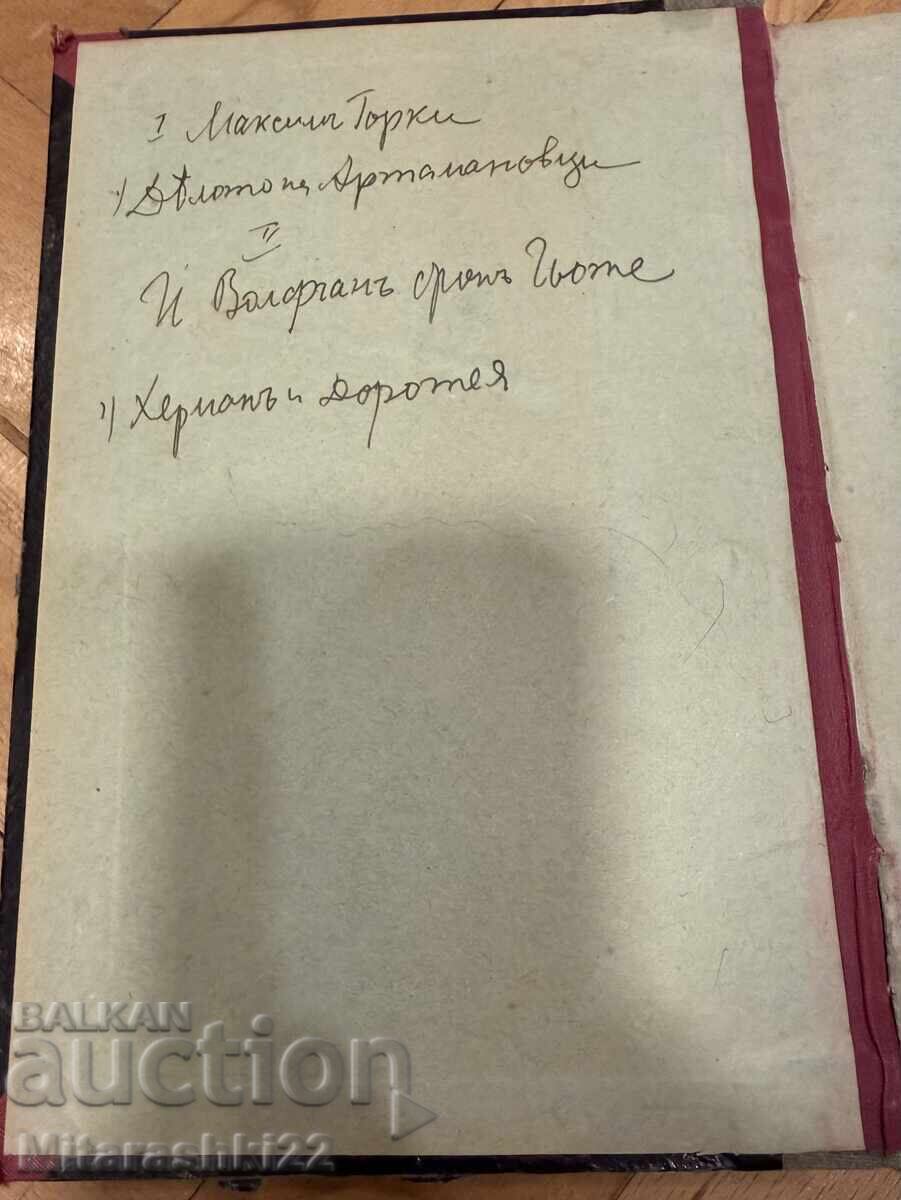 I Максимъ Горки
1) Дѣлото на Артамановци
II
Й Волфганъ фонъ Гьоте
1) Херманъ и Доротея
BALKAN
auction
Mitarashki22